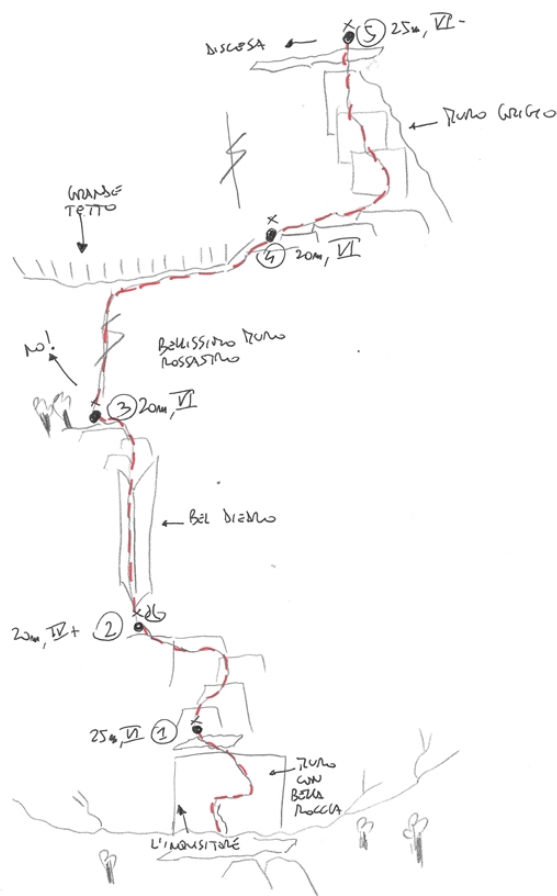 5 25m, VI-
DISCESA
MURO GRIGIO
GRANDE
TETTO
4 20m, VI
NO!
BELLISSIMO MURO
ROSSASTRO
3 20m, VI
BEL DIEDRO
20m, IV+ 2
25m, VI 1
MURO
CON
BELLA
ROCCIA
L'INQUISITORE